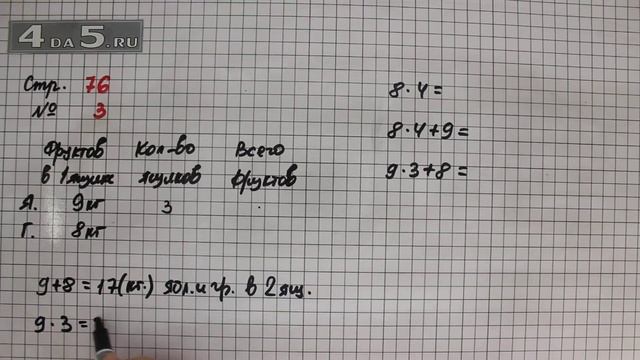 4DA5.RU
Стр. 76
№ 3
Фруктов Кол-во Всего
в 1 ящике ящиков фруктов
Я. 9 кг 3
Г. 8 кг
9+8=17(кг.) ябл. и гр. в 2 ящ.
9·3=
8·4=
8·4+9=
9·3+8=